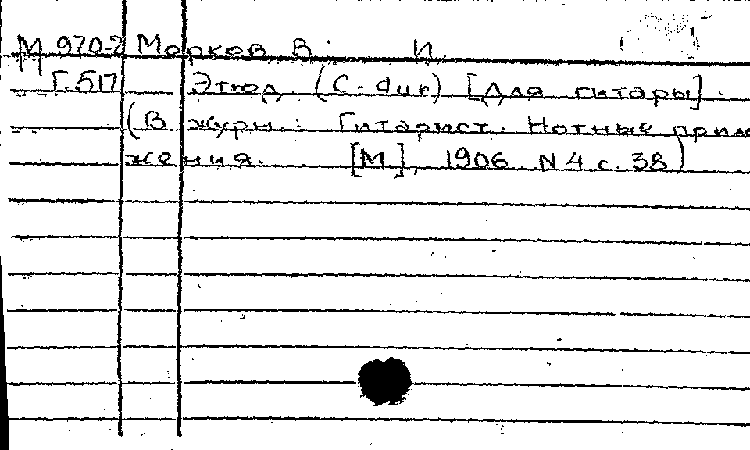 М 970-2 Марков В. И.
Г.517 Этюд (C-dur) [для гитары].
(В журн.: Гитарист. Нотные прило
жения. [М], 1906. N 4 с. 38)